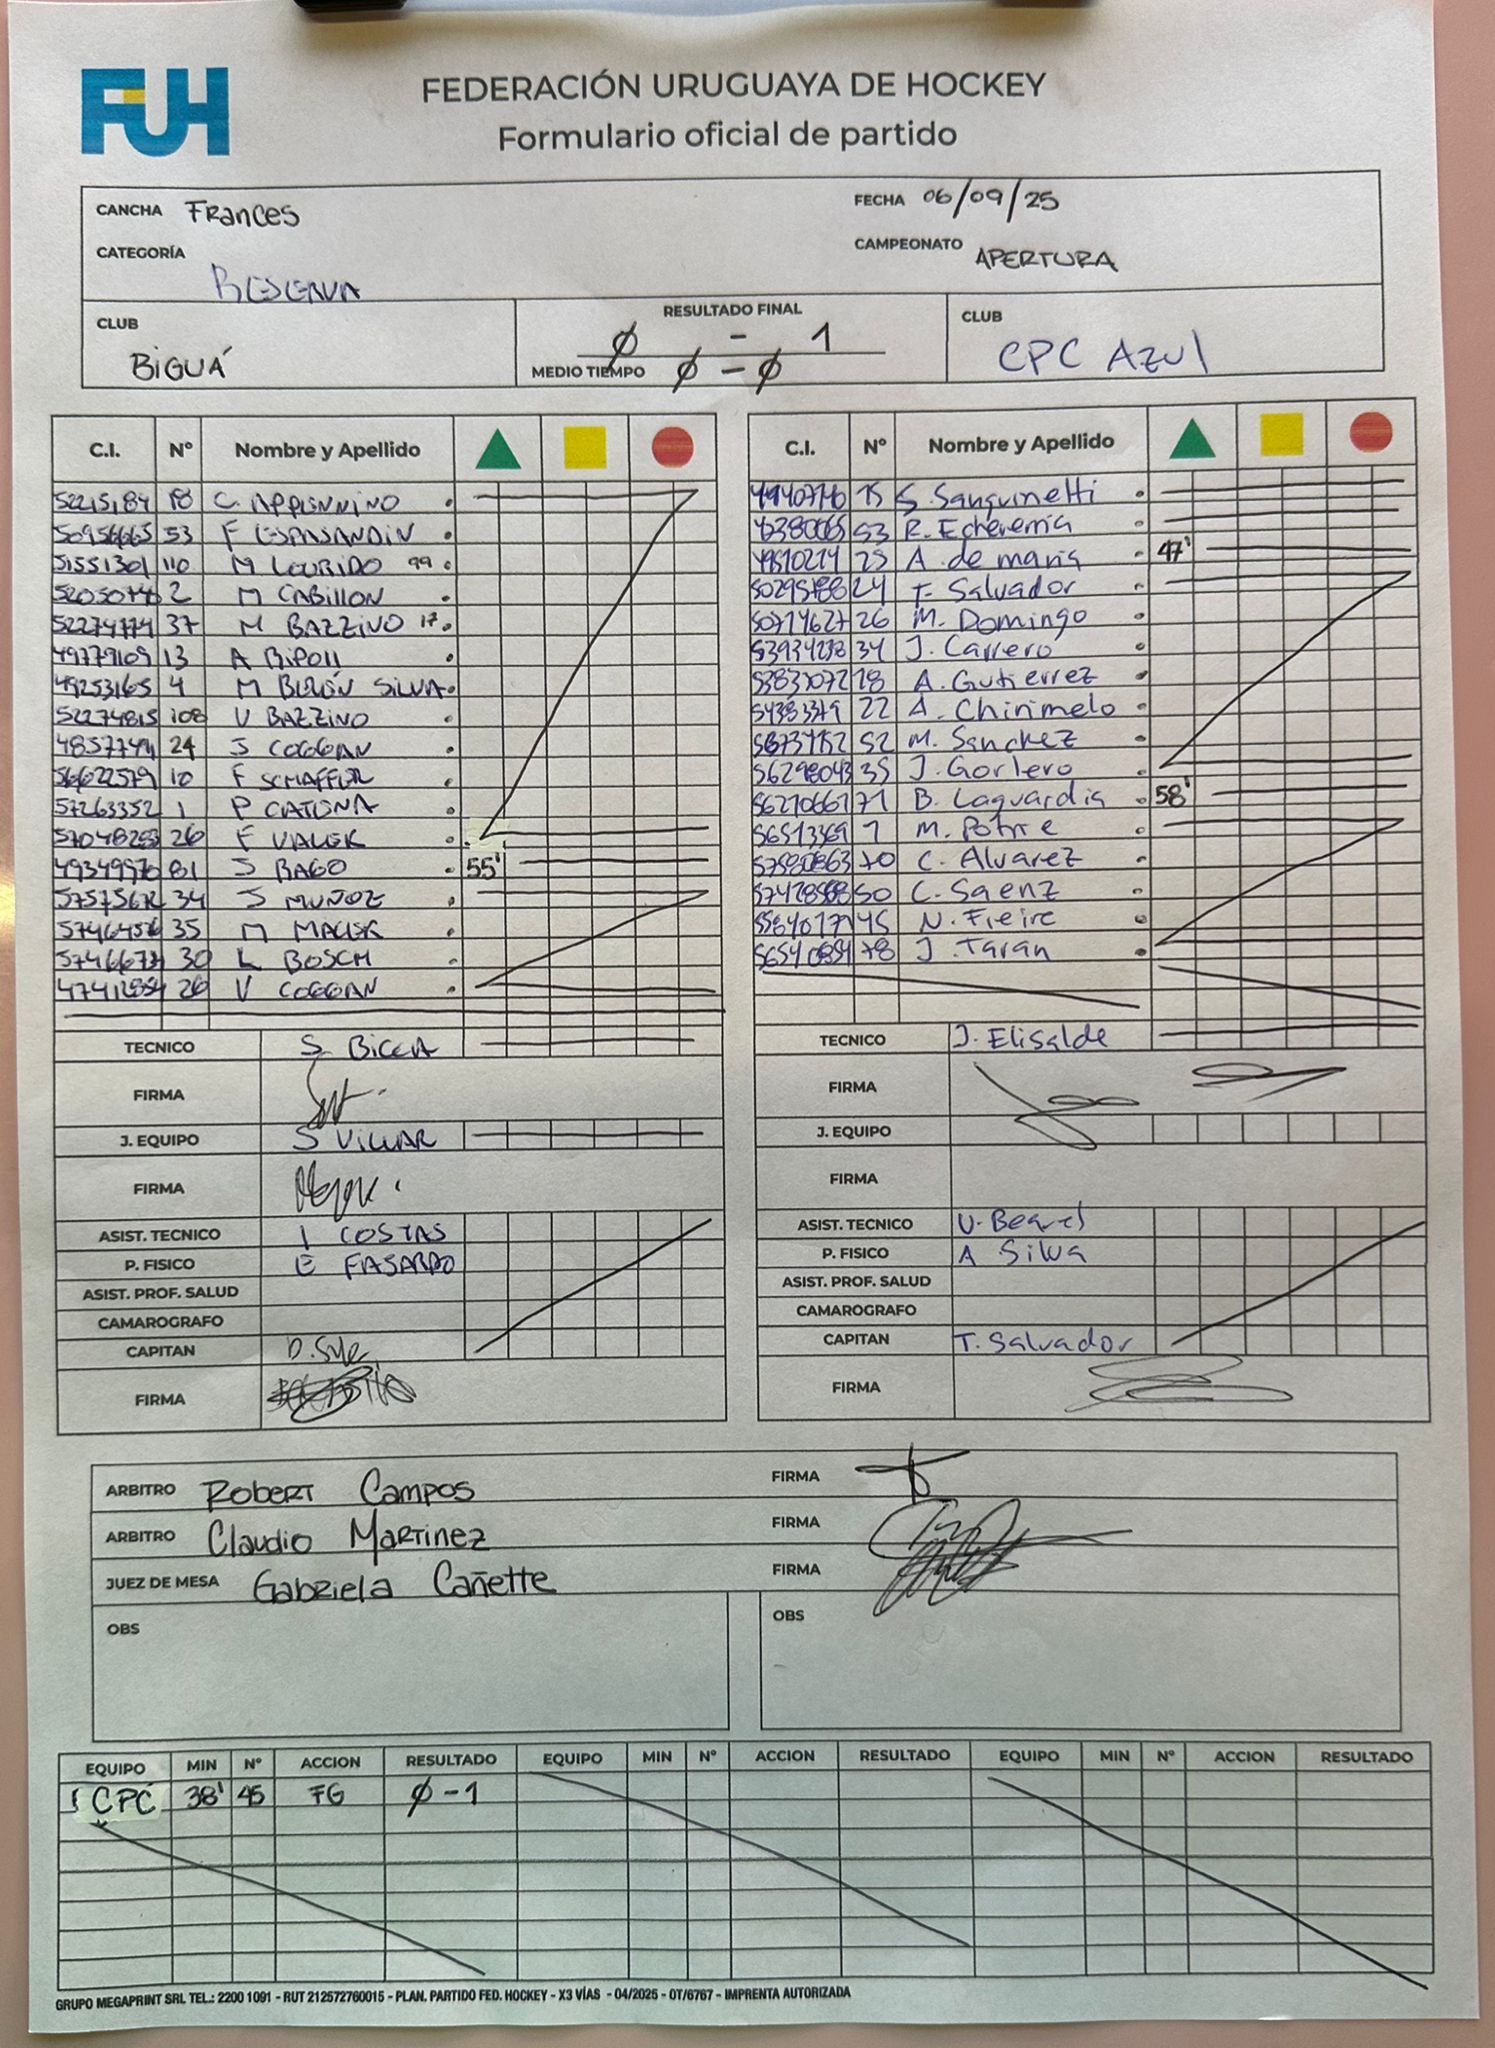 FUH
FEDERACIÓN URUGUAYA DE HOCKEY
Formulario oficial de partido
CANCHA Frances
FECHA 06/09/25
CATEGORÍA RESERVA
CAMPEONATO APERTURA
CLUB BIGUÁ
RESULTADO FINAL Ø - 1
MEDIO TIEMPO Ø - Ø
CLUB CPC AZUL
C.I. Nº Nombre y Apellido
52215184 18 C. APPENNINO
50956665 53 F ESPASANDIN
51551301 110 M LOURIDO 99
2 M CABILLON
52274774 37 M BAZZINO 17
49779109 13 A RIPOLL
49253165 4 M BERÓN SILVA
52274815 108 V BAZZINO
24 S COGGAN
56622579 10 F SCHAFFER
57263352 1 P CATENA
26 F
81 S BAGO 55'
34 S MUÑOZ
35 M
30 L BOSCH
26 V COGGAN
TECNICO S BICCA
FIRMA
J. EQUIPO S VILLAR
FIRMA
ASIST. TECNICO I COSTAS
P. FISICO E FASARDO
ASIST. PROF. SALUD
CAMAROGRAFO
CAPITAN
FIRMA
C.I. Nº Nombre y Apellido
15 S. Sanguinetti
53 R. Echeverria
25 A. de maria 47'
50295788 24 T. Salvador
50714627 26 M. Domingo
34 J. Carrero
18 A. Gutierrez
22 A. Chirimelo
52 M. Sanchez
56298043 35 J. Gorlero
71 B. Laguardia 58'
56513369 1 M.
57580863 70 C. Alvarez
50 C. Saenz
45 N. Freire
78 J. Taran
TECNICO J. Elisalde
FIRMA
J. EQUIPO
FIRMA
ASIST. TECNICO
P. FISICO A Silva
ASIST. PROF. SALUD
CAMAROGRAFO
CAPITAN T. Salvador
FIRMA
ARBITRO Robert Campos FIRMA
ARBITRO Claudio Martinez FIRMA
JUEZ DE MESA Gabriela Cañette FIRMA
OBS OBS
EQUIPO MIN Nº ACCION RESULTADO EQUIPO MIN Nº ACCION RESULTADO EQUIPO MIN Nº ACCION RESULTADO
CPC 38' 45 FG Ø-1
GRUPO MEGAPRINT SRL TEL.: 2200 1091 - RUT 212572760015 - PLAN. PARTIDO FED. HOCKEY - X3 VÍAS - 04/2025 - OT/6767 - IMPRENTA AUTORIZADA